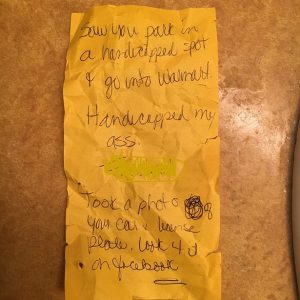 Saw you park in
a handicapped spot
& go into Walmart.
Handicapped my
ass.
Took a photo of
your car & license
plate, look 4 it
on facebook